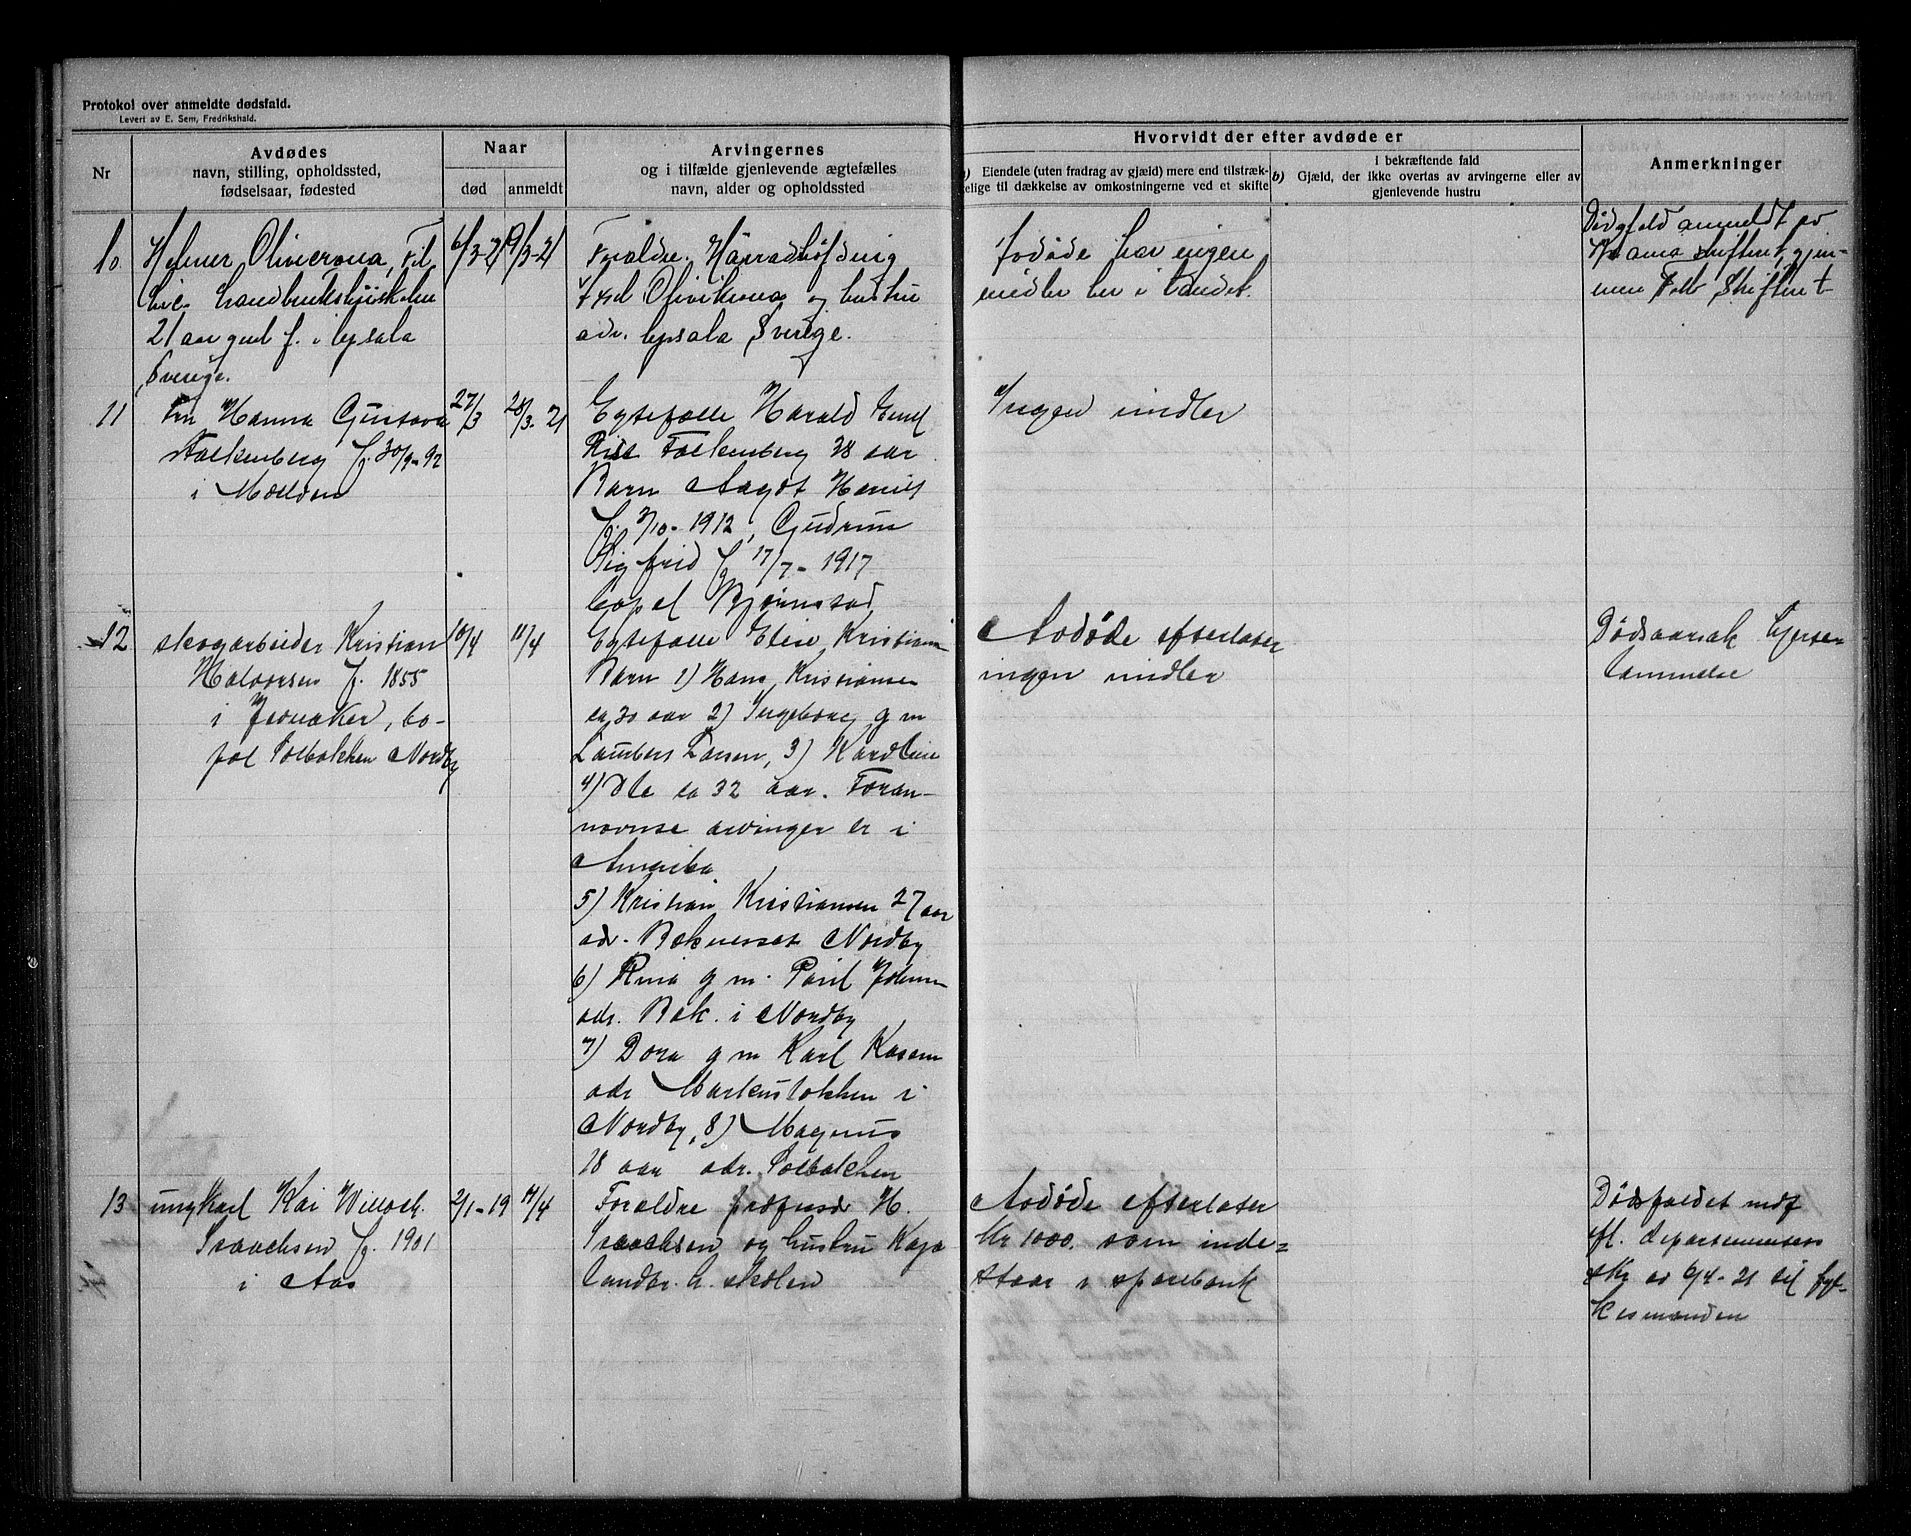 Protokol over anmeldte dødsfald.
Levert av E. Sem, Fredrikshald.
Nr
Avdødes
navn, stilling, opholdssted,
fødselsaar, fødested
Naar
død
anmeldt
Arvingernes
og i tilfælde gjenlevende ægtefælles
navn, alder og opholdssted
Hvorvidt der efter avdøde er
Eiendele (uten fradrag av gjæld) mere end tilstræk-
kelige til dækkelse av omkostningerne ved et skifte
b)
I bekræftende fald
Gjæld, der ikke overtas av arvingerne eller av
gjenlevende hustru
Anmerkninger
10
Helmer Olivecrona,
landbrukshøiskolen
21 aar gml f. i Upsala
Sverige.
6/3-21
9/3-21
Forældre. Häradshöfding
Axel Olivikrona og hustru
adr. Upsala Sverige.
Avdøde har ingen
midler her i landet.
Dødsfald anmeldt av
skifteret, gjen-
nem skifteret
11
Fru Hanna Gustava
Falkenberg f. 30/9-92
i
27/3
28/3. 21
Egtefælle Harald Emil
Falkenberg 28 aar
Barn Aagot
f. 2/10-1912, Gudrun
Sigfrid f 17/7-1917
bopæl Bjørnstad
Ingen midler
12
skogarbeider Kristian
Halvorsen f. 1855
i Jevnaker, bo-
pæl Solbakken Nordby
10/4
11/4
Egtefælle Elise Kristiansen
Barn 1) Hans Kristiansen
ca 30 aar 2) Ingeborg g m
Lambert Larsen, 3) Karoline
4) Ole ca 32 aar. Foran-
nævnte arvinger er i
Amerika.
5) Kristian Kristiansen 27 aar
adr. Nordby
6) g m.
adr. Bæk. i Nordby
7) Dora g m Karl
adr i
Nordby, 8) Magnus
18 aar adr. Solbakken
Avdøde efterlater
ingen midler
Dødsaarsak
13
ungkarl Kai Willoch
Isaachsen f. 1901
i Aas
2/1-19
14/4
Forældre professor H.
Isaachsen og hustru Kaja
landbr. h. skolen
Avdøde efterlater
Kr 1000. som inde-
staar i sparebank
Dødsfaldet medf
departementets
skr av 6/4-21 til fyl-
kesmanden